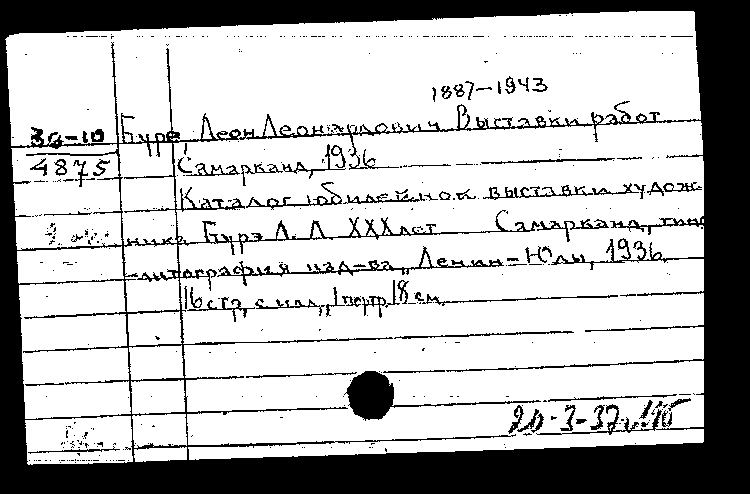 1887-1943
36-10 Бурэ, Леон Леонардович Выставки работ
4875 Самарканд, 1936
Каталог юбилейной выставки худож-
ника Бурэ Л. Л. XXX лет Самарканд, типо
-литография изд-ва „Ленин-Юлы, 1936.
16 стр, с илл, 1 портр. 18 см.
20-3-37